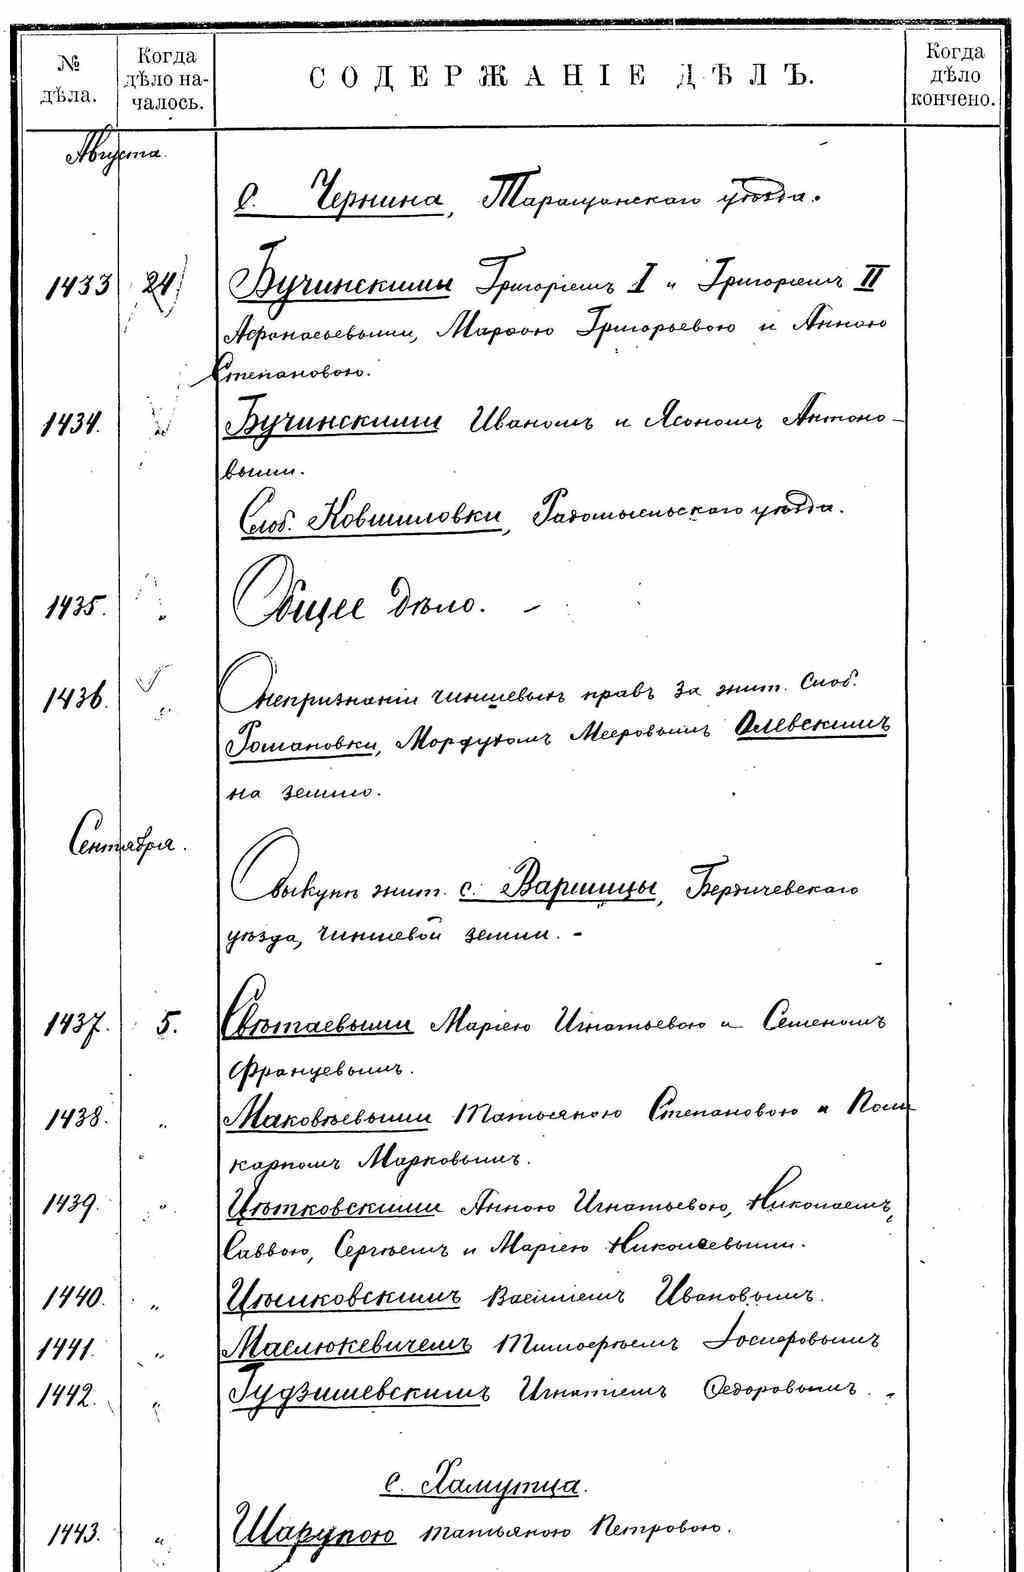 № дѣла.
Когда дѣло на-
чалось.
СОДЕРЖАНІЕ ДѢЛЪ.
Когда дѣло кончено.
Августа.
с. Чернина, Таращанскаго уѣзда.
1433 24 Бучинскими Григоріемъ I и Григоріемъ II
Афанасьевыми, Марѳою Григорьевою и Анною
Степановою.
1434. " Бучинскими Иваномъ и Ясономъ Антоно-
выми.
Слоб. Ковшиловки, Радомысльского уѣзда.
1435. " Общее дѣло. -
1436. " О непризнаніи чиншевыхъ правъ за жит. Слоб.
Романовки, Мордухомъ Мееровымъ Олевскимъ
на землю.
Сентября.
О выкупѣ жит. с. Варшицы, Бердичевскаго
уѣзда, чиншевой земли. -
1437. 5. Свѣтаевыми Маріею Игнатьевою и Семеномъ
Францевымъ.
1438. " Маковѣевыми Татьяною Степановою и Поли
карпомъ Марковымъ.
1439. " Цѣтковскими Анною Игнатьевою, Николаемъ,
Саввою, Сергѣемъ и Маріею Николаевыми.
1440. " Василіемъ Ивановымъ.
1441. " Маслюкевичемъ Тимофѣемъ Іосифовымъ
1442. " Гудзишевскимъ Игнатіемъ Ѳедоровымъ.
с. Хамутца.
1443. " Шарупою Татьяною Петровою.